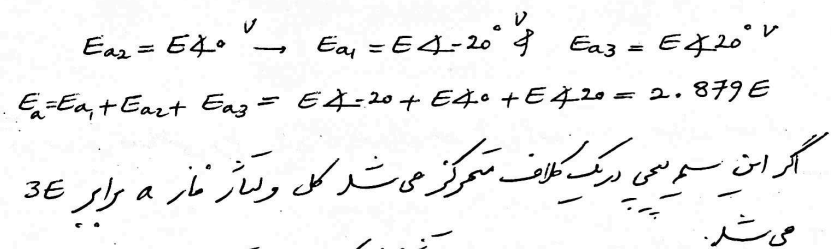 Ea2 = E∡0 V → Ea1 = E∡-20° و Ea3 = E∡20° V
Ea = Ea1 + Ea2 + Ea3 = E∡-20 + E∡0 + E∡20 = 2.879E
اگر این سیم پیچی در یک کلاف متمرکز می شد کل ولتاژ فاز a برابر 3E
می شد.